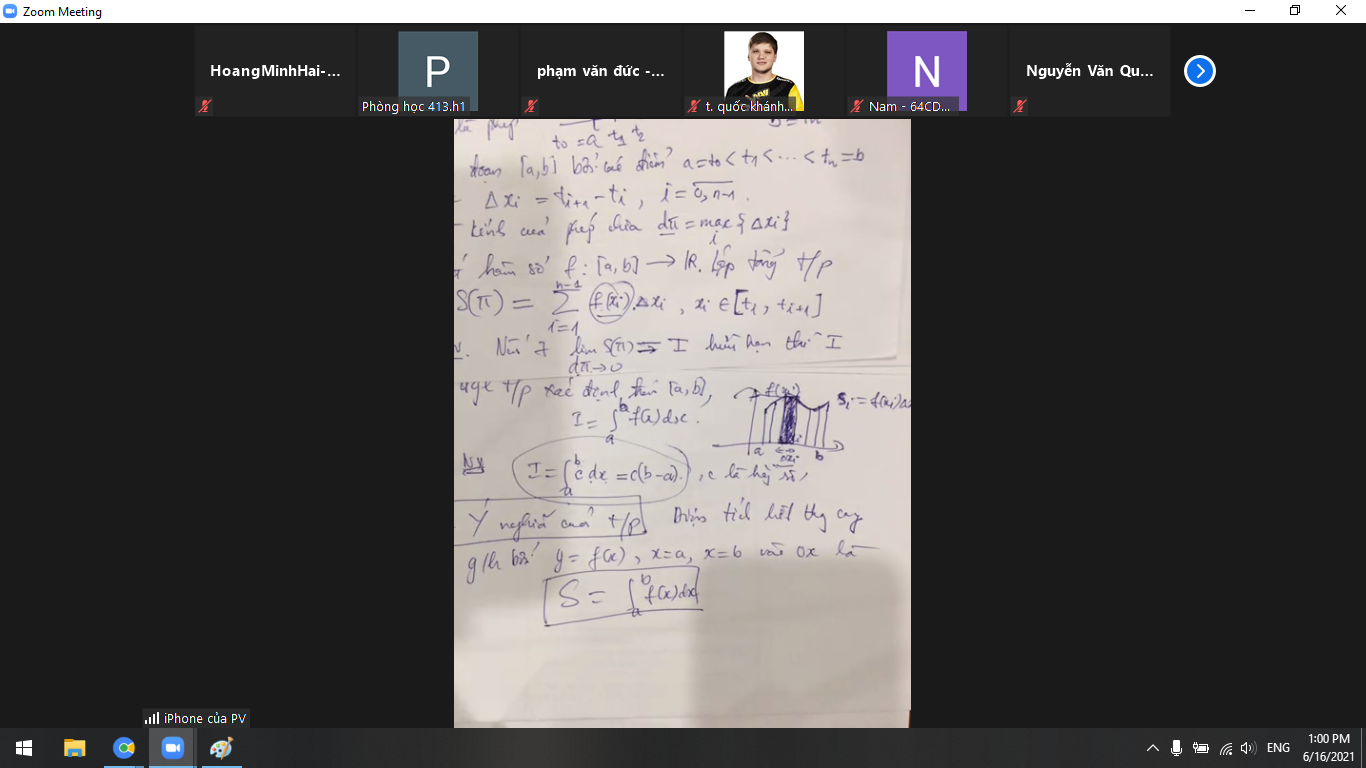 Zoom Meeting
HoangMinhHai-...
P
Phòng học 413.h1
phạm văn đức -...
t. quốc khánh...
N
Nam - 64CD...
Nguyễn Văn Qu...
là phép
t₀ = a t₁ t₂
đoạn [a,b] bởi các điểm a = t₀ < t₁ < ... < tₙ = b
Δxᵢ = tᵢ₊₁ - tᵢ, i = 0, n-1.
kính của phép chia dπ = max {Δxᵢ}
i
hàm số f: [a,b] → IR. Lập tổng t/p
n-1
S(π) = Σ f(xᵢ).Δxᵢ, xᵢ ∈ [tᵢ, tᵢ₊₁]
i=1
Nếu ∃ lim S(π) = I hữu hạn thì I
dπ→0
t/p xác định trên [a,b],
I = ∫ₐᵇ f(x)dx.
f(xᵢ)
Sᵢ = f(xᵢ)Δ
a Δxᵢ b
NX I = ∫ₐᵇ c dx = c(b-a), c là hằng số,
Ý nghĩa của t/p Diện tích hết thg cong
g/h bởi y = f(x), x=a, x=b và Ox là
S = ∫ₐᵇ f(x)dx
iPhone của PV
ENG
1:00 PM
6/16/2021